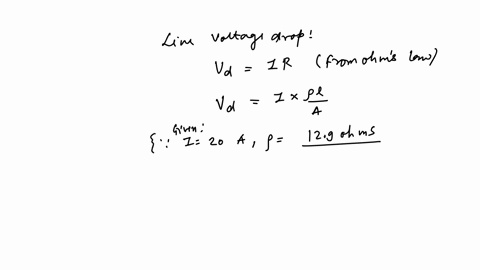 Line Voltage drop!
Vd = IR (from ohm's law)
Vd = I × ρl/A
{∵ Given: I = 20 A, ρ = 12.9 ohms